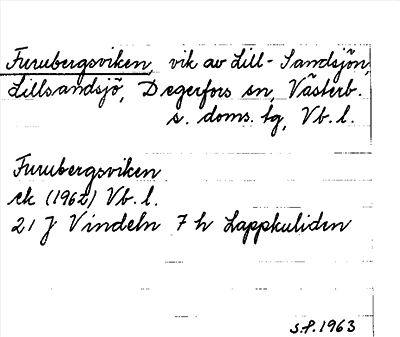 Furubergsviken, vik av Lill-Sandsjön,
Lillsandsjö, Degerfors sn, Västerb.
s. doms. tg, Vb. l.
Furubergsviken
ek (1962) Vb. l.
21 J Vindeln 7 h Lappkuliden
S.P. 1963